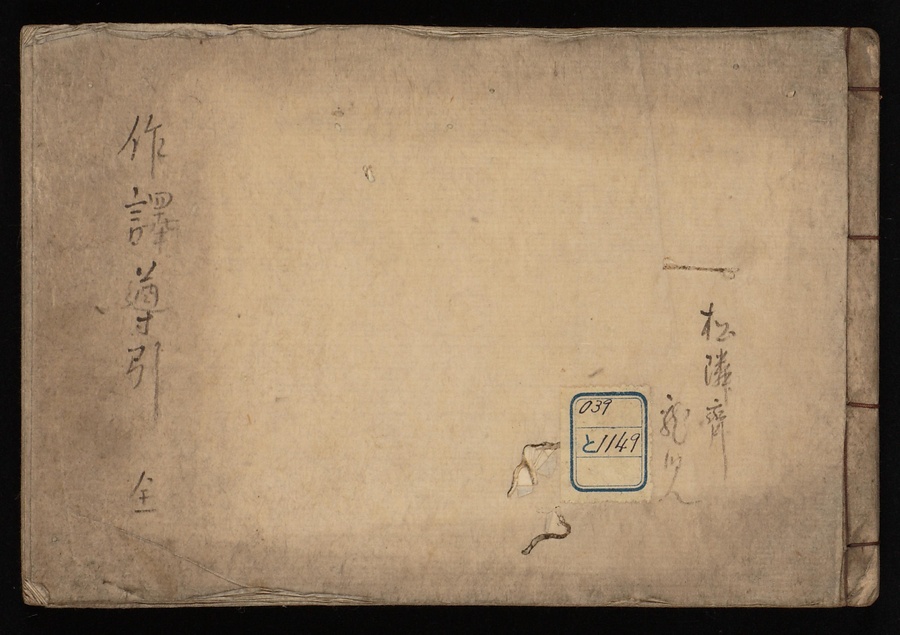 松隣齊
作譯導引 全
039
と1149